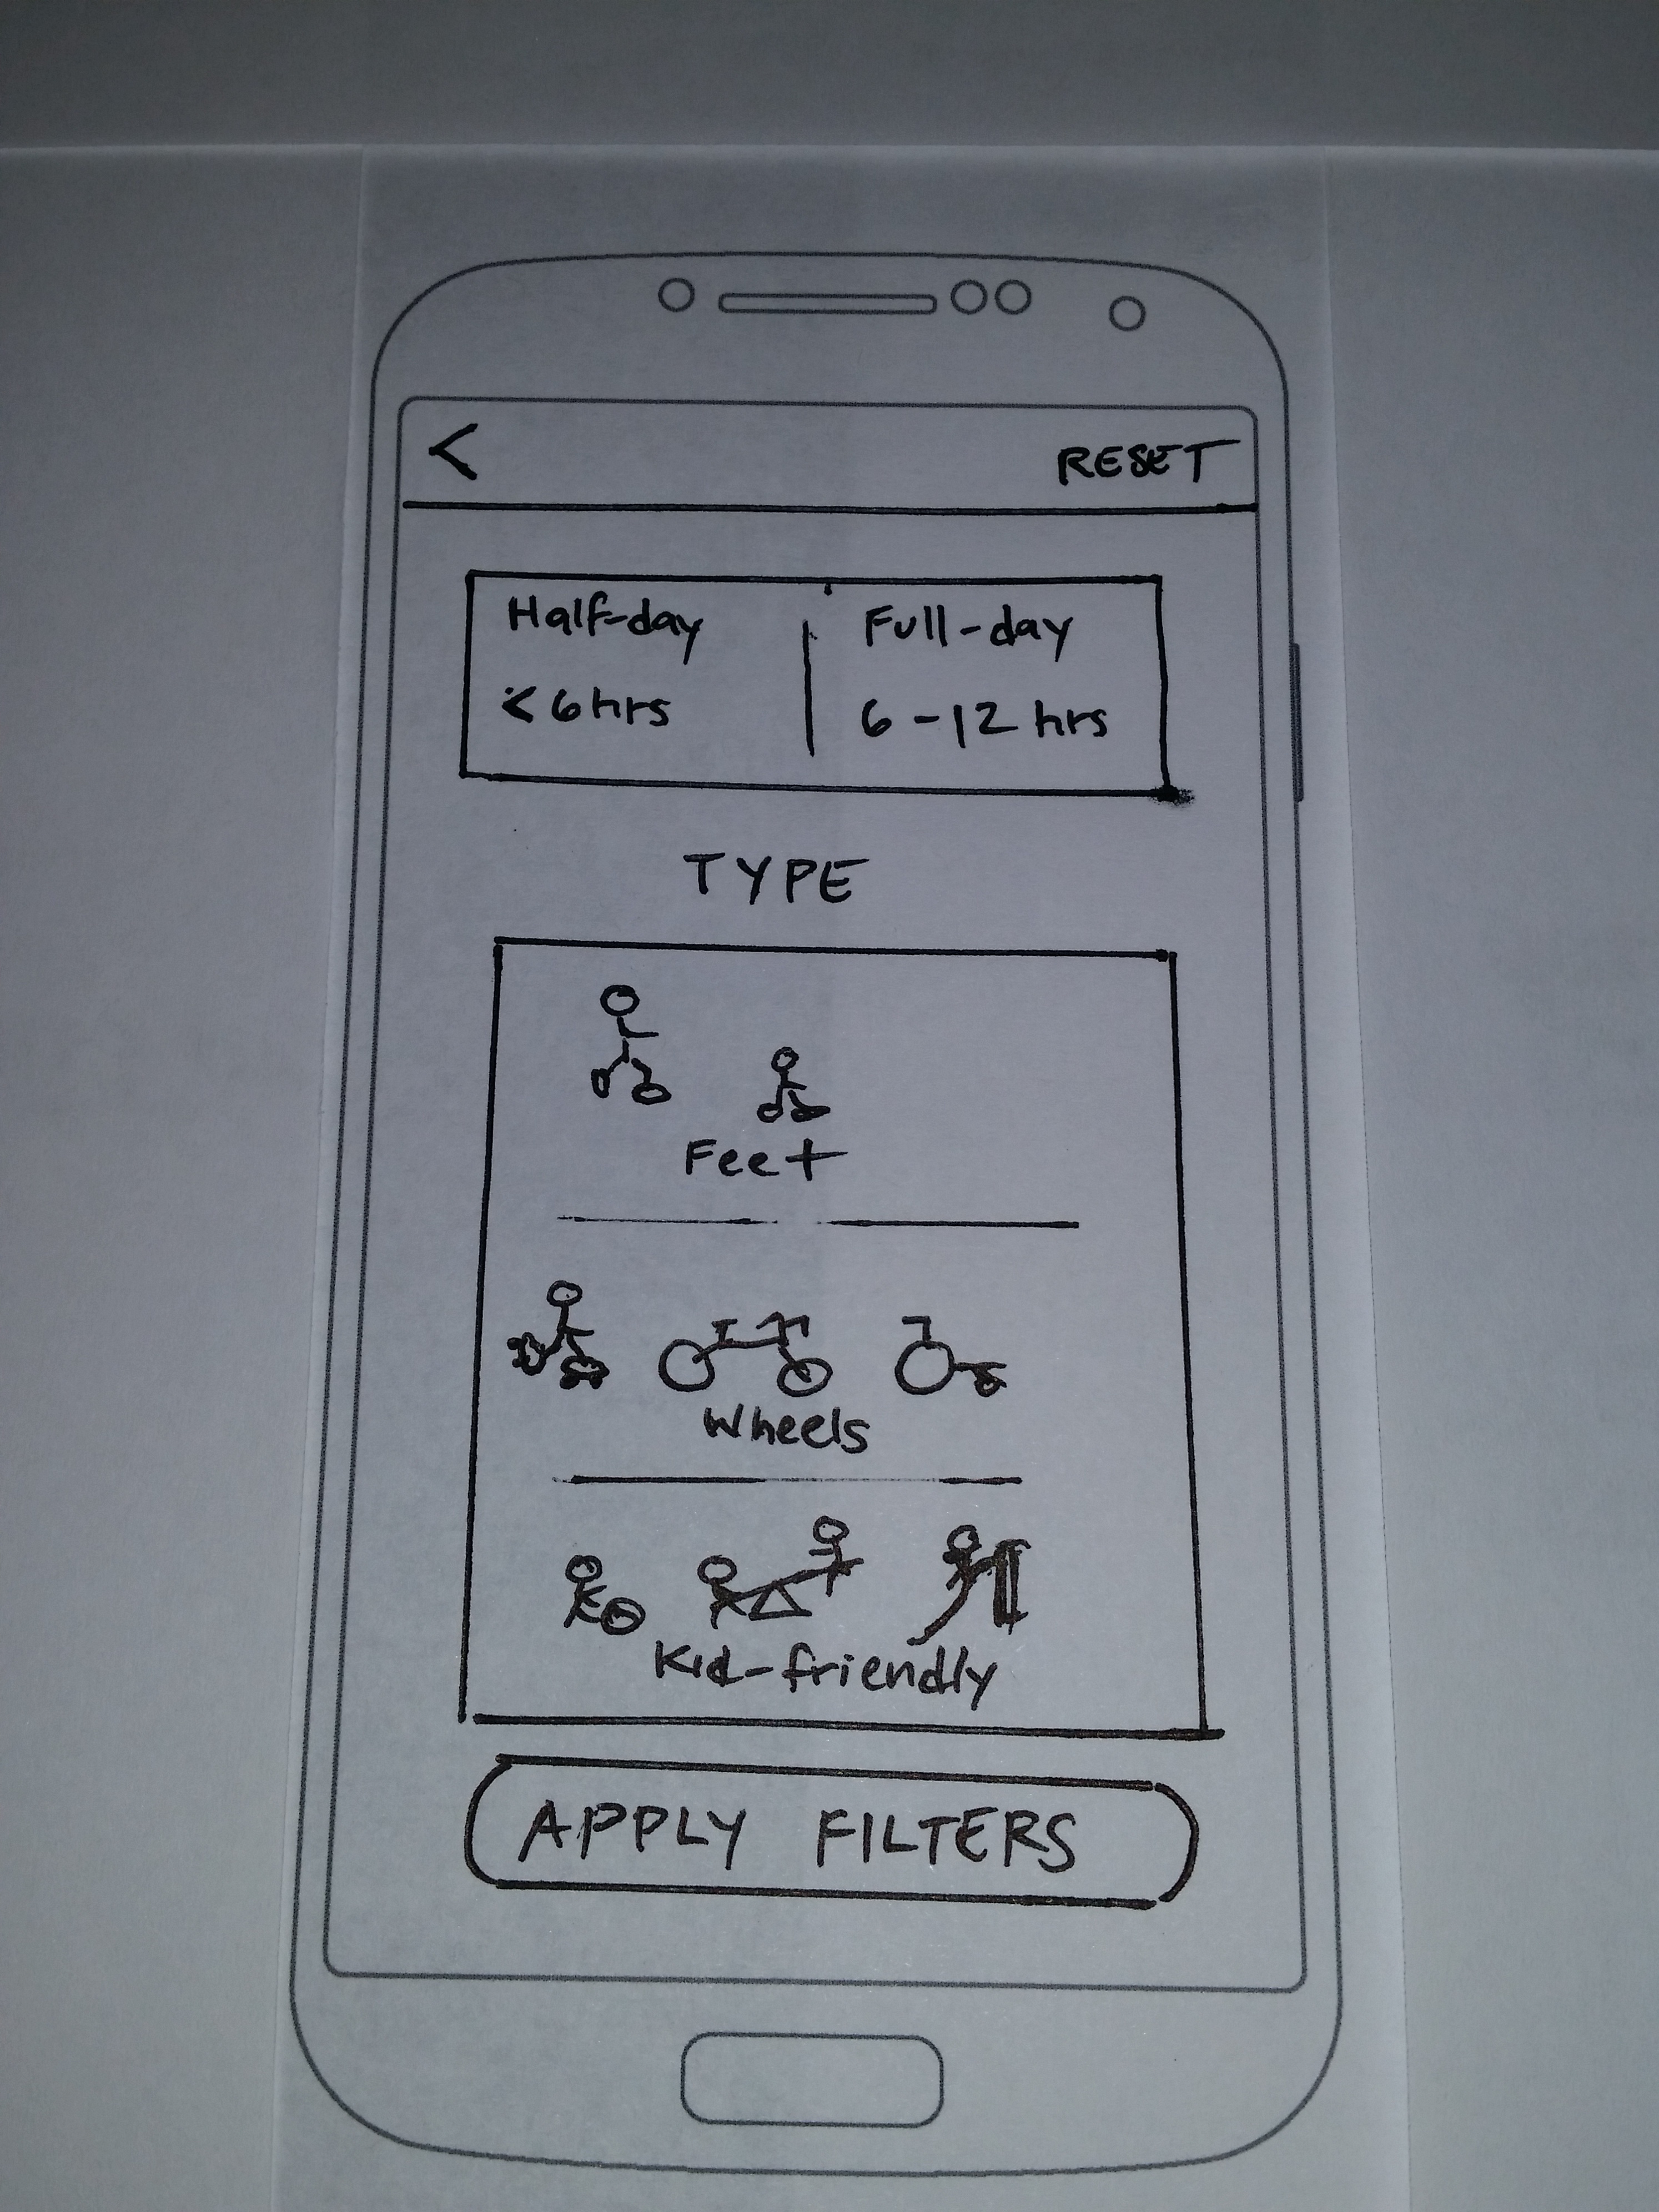 < RESET
Half-day Full-day
<6 hrs 6-12 hrs
TYPE
Feet
Wheels
Kid-friendly
APPLY FILTERS